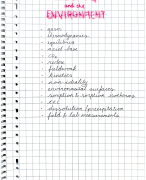 and the
ENVIRONMENT
- gases
- thermodynamics
- equilibria
- acid-base
- redox
- fieldwork
- kinetics
- non-ideality
- environmental surfaces
- sorption & sorption isotherms
- dissolution/precipitation
- field & lab measurements